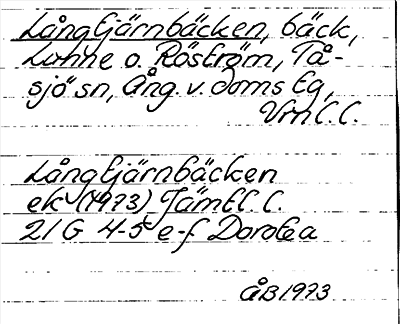 Långtjärnbäcken, bäck,
Lohne o. Röström, Tå-
sjö sn, Ång. v. doms tg,
Vrnl. l.
Långtjärnbäcken
ek (1973) Jämtl. l.
21 G 4-5 e-f Dorotea
ÅB 1973